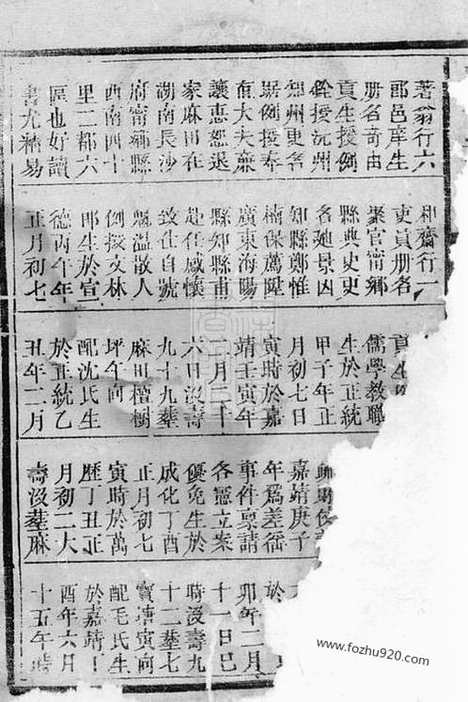 著翁行六
郡邑庠生
册名奇由
貢生援例
銓授沅州
知州更名
據例授奉
直大夫兼
讓惠恕退
家麻田在
湖南長沙
府甯鄉縣
西南四十
里二都六
區也好讀
書尤精易
和齋行一
吏員册名
聚官甯鄉
縣典史吏
名廸景因
知縣鄭惟
楠保薦陞
廣東海陽
縣知縣甫
赴任感懷
致仕自號
醞溫散人
例授文林
郎生於宣
德丙午年
正月初七
貢生
儒學教職
生於正統
甲子年正
月初七日
寅時於嘉
靖壬寅年
二月二十
六日沒壽
九十九塟
麻田檀樹
坪午向
配沈氏生
於正統乙
丑年二月
嘉靖庚子
年爲差徭
事件稟請
各憲立案
優免生於
成化丁酉
正月初七
寅時於萬
歷丁丑正
月初二大
壽沒塟麻
於
卯年二月
十一日巳
時沒壽九
十二塟七
寳塘寅向
配毛氏生
於嘉靖丁
酉年六月
十五午時
www.fozhu920.com